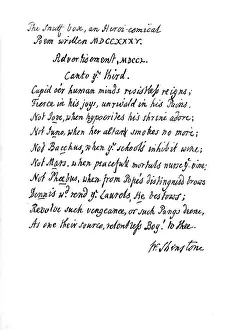 The Snuff box, an Heroi-comical
Poem written MDCCXXXV.
Advertisement, MDCCL.
Canto yᵉ third.
Cupid o'er human minds resistless reigns;
Fierce in his joys, unrival'd in his Pains.
Not Jove, when hypocrites his shrine adore;
Not Juno, when her altars smokes no more;
Not Bacchus, when yᵉ schools inhibit wine;
Not Mars, when peacefull mortals nurse yᵉ vine;
Not Phœbus, when from Pope's distinguish'd brows
Dennis wᵈ rend yᵉ Laurels, He bestows;
Revolve such vengeance, or such Pangs decree,
As one their source, relentless Boy! to thee.
W. Shenstone